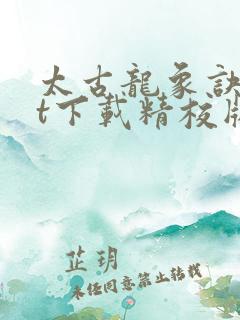 太古龍象訣
t下載精校版
芷玥
未经同意禁止转载